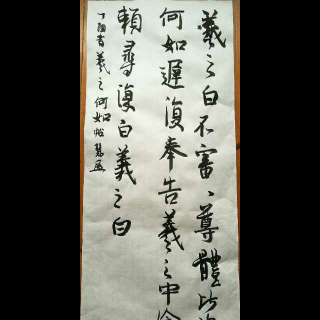 羲之白不審、尊體比
何如遲復奉告羲之中
賴尋復白羲之白
丁酉書羲之何如帖